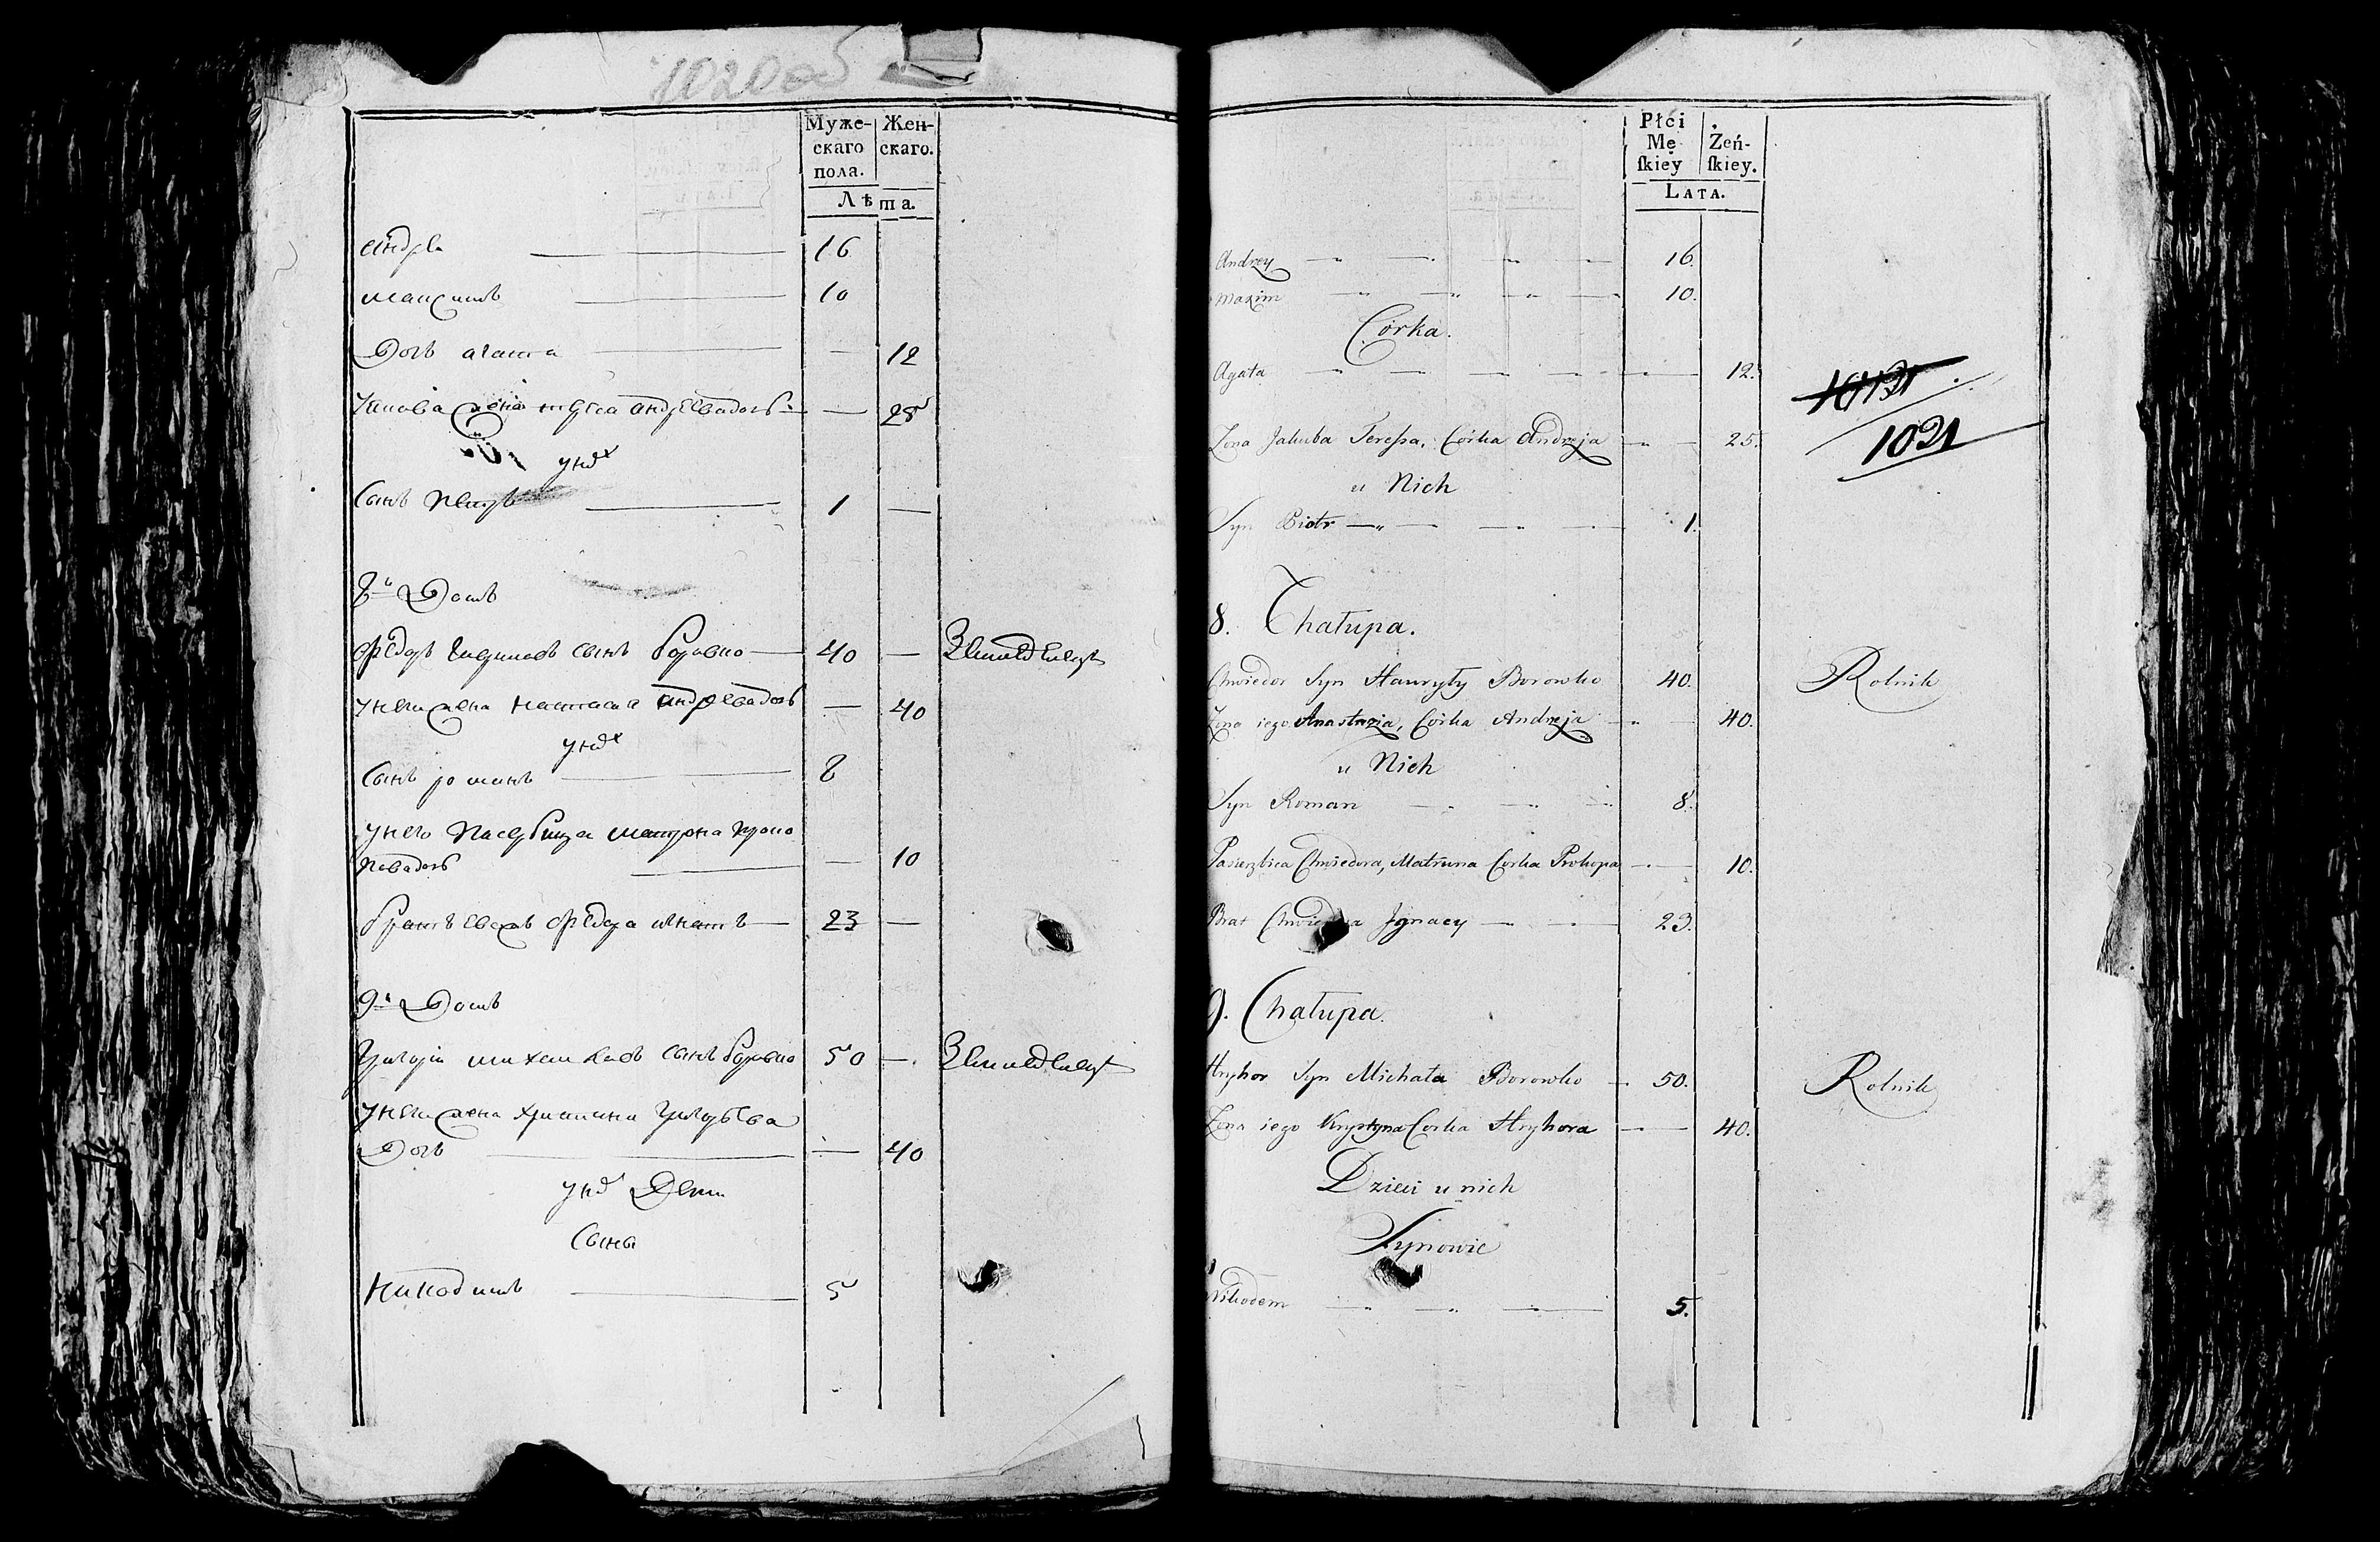 1020об
Муже-
скаго
пола.
Жен-
скаго.
Лѣта.
Андрей 16
Максимъ 10
Дочь агата — 12
Якова жена тереса андреева дочь — 25
у них
Сынъ Петръ 1 —
8й Домъ
Федоръ гаврилов сынъ боровко — 40 — Земледѣлецъ
у него жена настасья андреева дочь — 40
у них
Сынъ романъ 8
у него Пасербица матрона проко
пова дочь — 10
братъ Федора игнатъ — 23 —
9й Домъ
Григорій михайловъ сынъ боровко 50 — Земледѣлецъ
у него жена христина григорьева
Дочь — 40
у них Дети
Сыны
Никодимъ 5
Płci
Mę
ſkiey
Żeń-
ſkiey.
LATA.
Andrzey 16.
Maxim 10.
Córka.
Agata 12.
1021
Żona Jakuba Teressa, Córka Andrzeja 25.
u Nich
Syn Piotr 1.
8. Chałupa.
Chwiedor Syn Hauryły Borowko 40. Rolnik
Żona iego Anastazia, Córka Andrzeja 40.
u Nich
Syn Roman 8.
Pasierzbica Chwiedora, Matruna Corka Prokopa 10.
Brat Chwiedora Jgnacy 23.
9. Chałupa.
Hryhor Syn Michała Borowko 50. Rolnik
Żona iego Krystyna Corka Hryhora 40.
Dzieci u nich
Synowie
Nikodem 5.